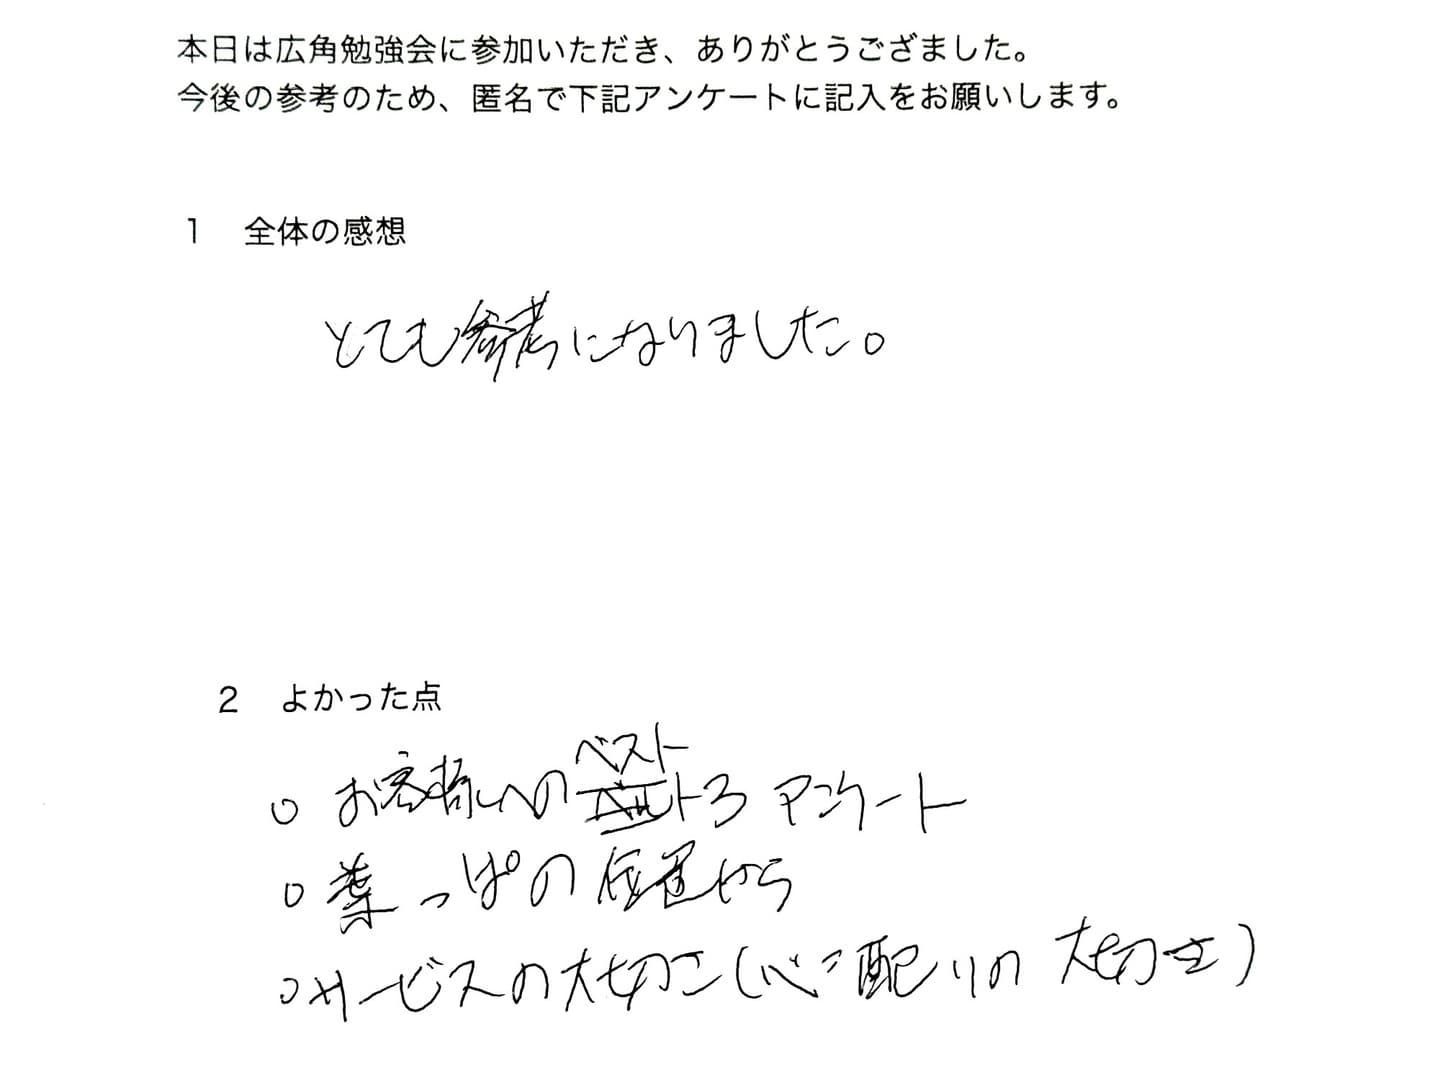 本日は広角勉強会に参加いただき、ありがとうござました。
今後の参考のため、匿名で下記アンケートに記入をお願いします。
1 全体の感想
とても参考になりました。
2 よかった点
ベスト
○ お客様への 3 アンケート
○ 葉っぱの位置から
○サービスの大切さ(心配りの大切さ)